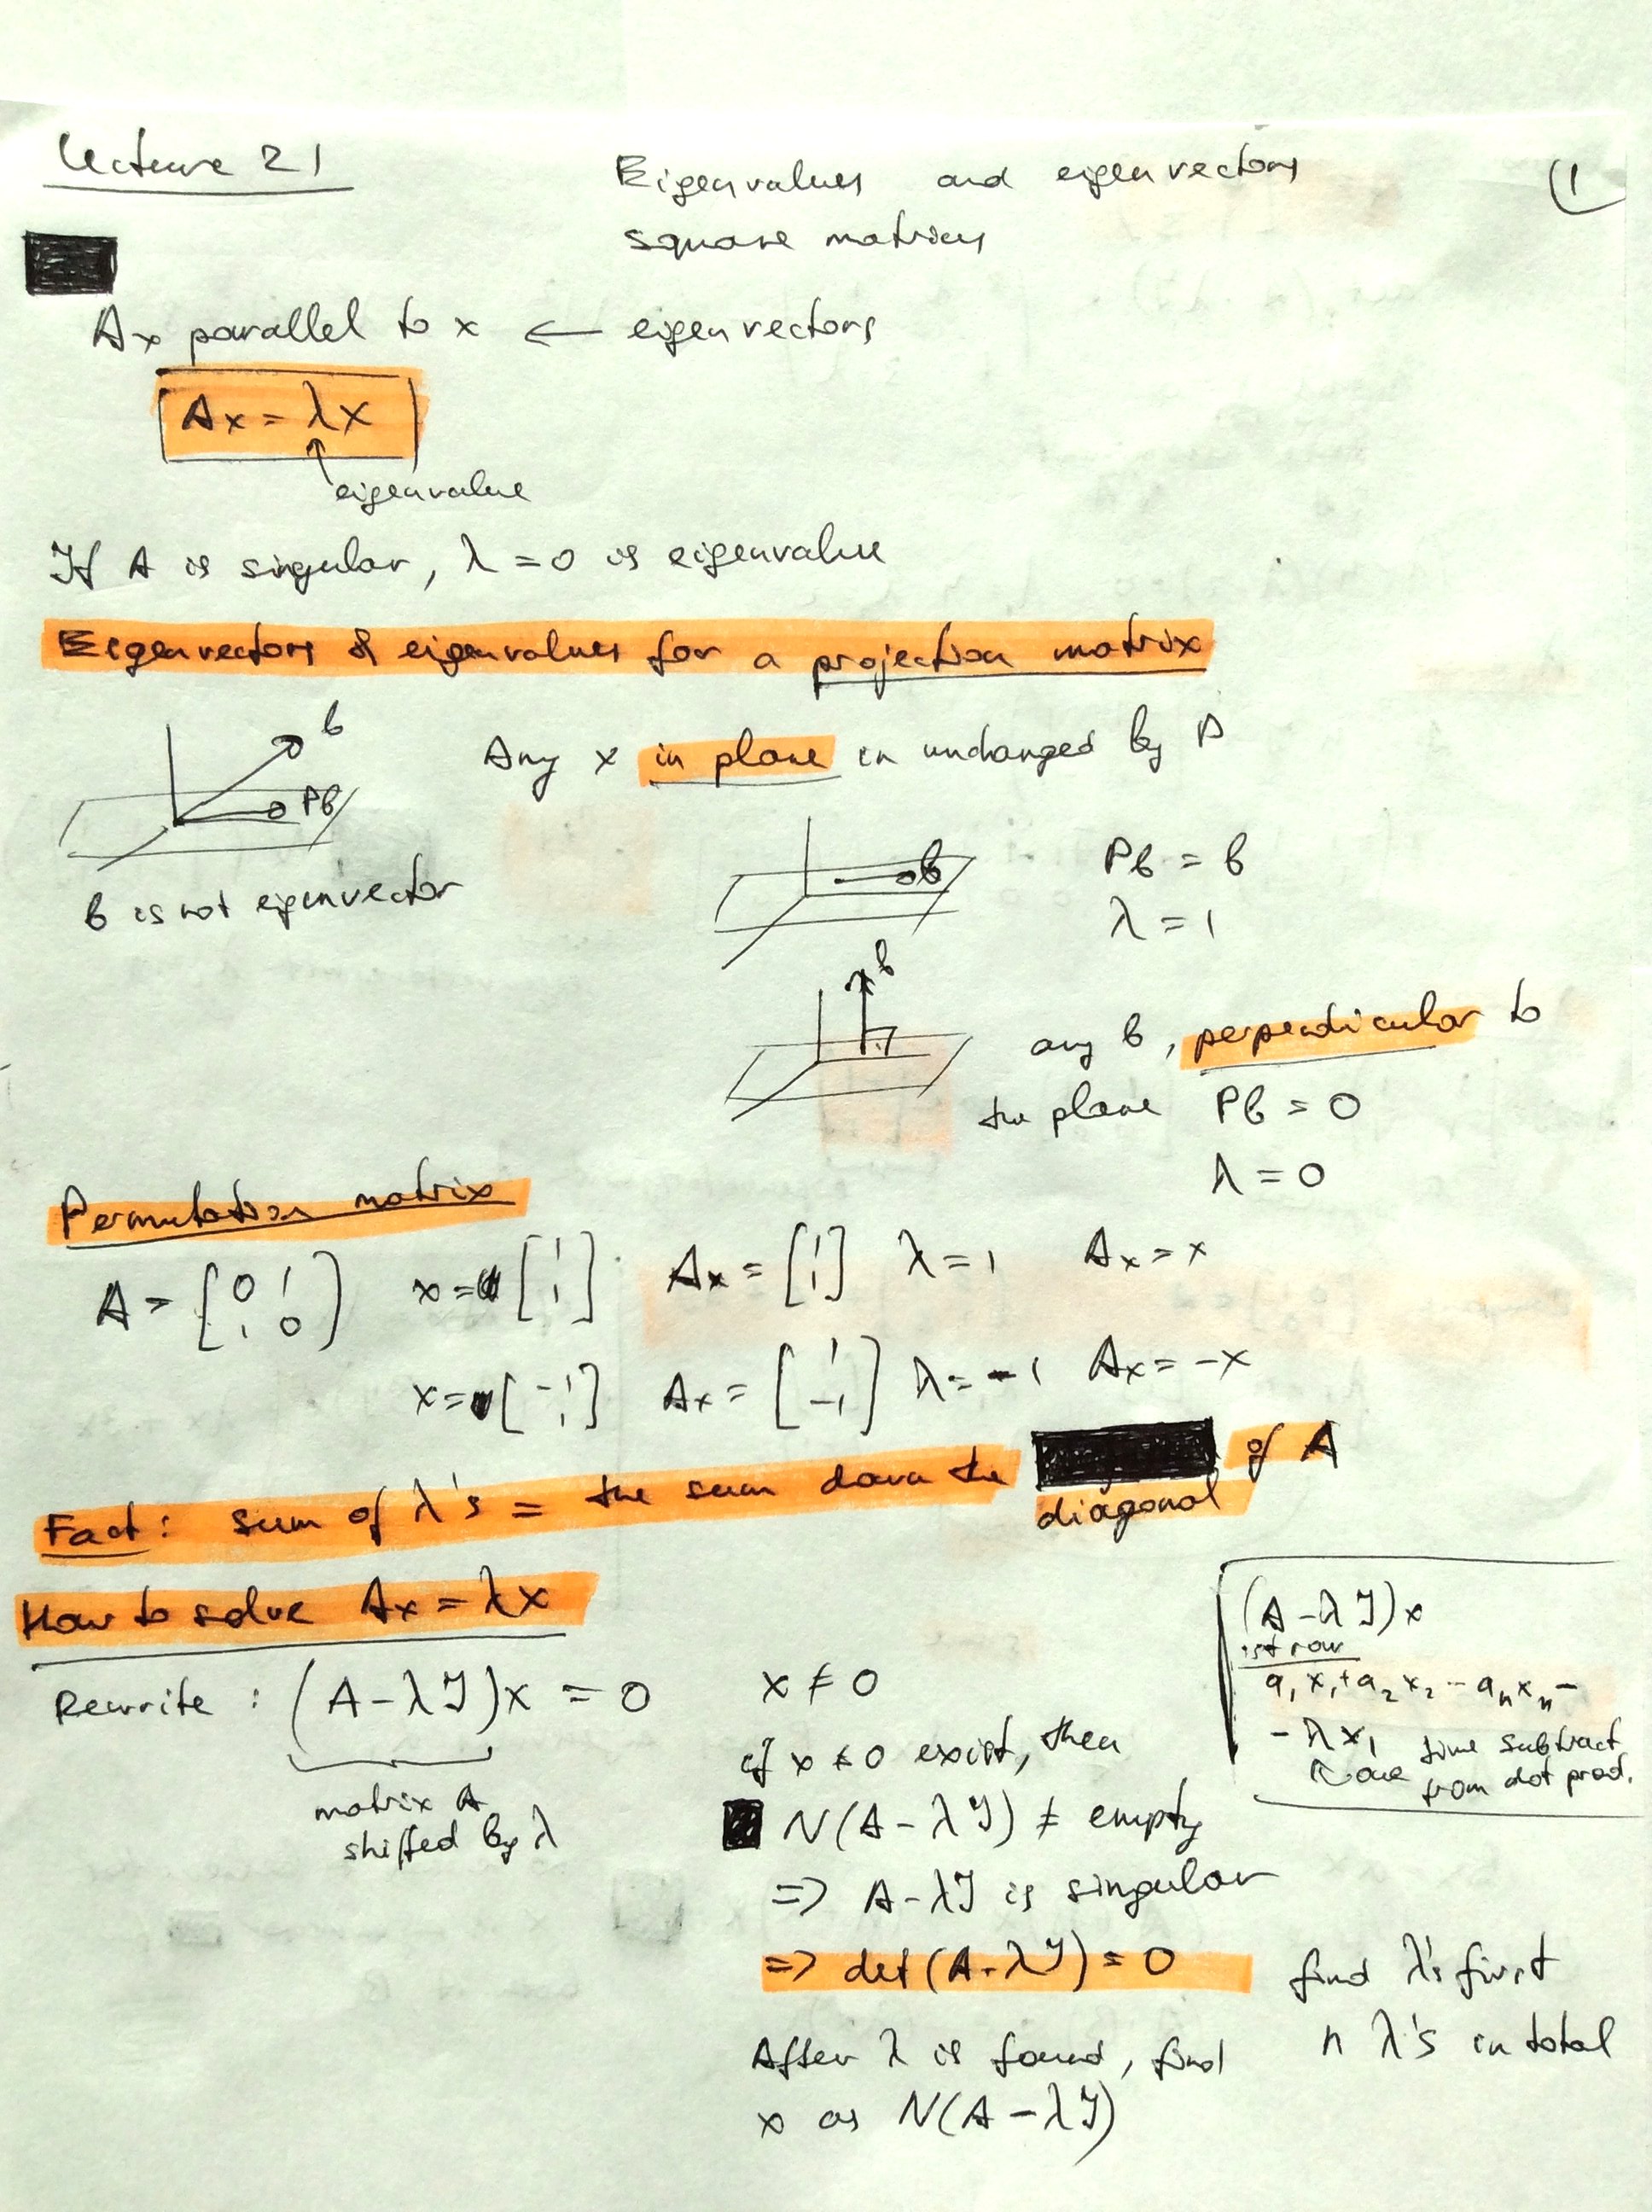 Lecture 21
Eigenvalues and eigenvectors
square matrices
(1
Ax parallel to x ← eigenvectors
Ax = λx
↑
eigenvalue
If A is singular, λ = 0 is eigenvalue
Eigenvectors & eigenvalues for a projection matrix
b
Pb
b is not eigenvector
Any x in plane in unchanged by P
b
Pb = b
λ = 1
b
any b, perpendicular to
the plane Pb = 0
λ = 0
Permutation matrix
A = [0 1; 1 0] x = [1; 1] Ax = [1; 1] λ = 1 Ax = x
x = [-1; 1] Ax = [1; -1] λ = -1 Ax = -x
Fact: sum of λ's = the sum down the diagonal of A
How to solve Ax = λx
Rewrite: (A - λI)x = 0
matrix A
shifted by λ
x ≠ 0
if x ≠ 0 exist, then
N(A - λI) ≠ empty
=> A - λI is singular
=> det(A - λI) = 0
find λ's first
n λ's in total
After λ is found, find
x as N(A - λI)
(A - λI)x
1st row
a₁x₁ + a₂x₂ -- aₙxₙ -
- λx₁
one time subtract
from dot prod.